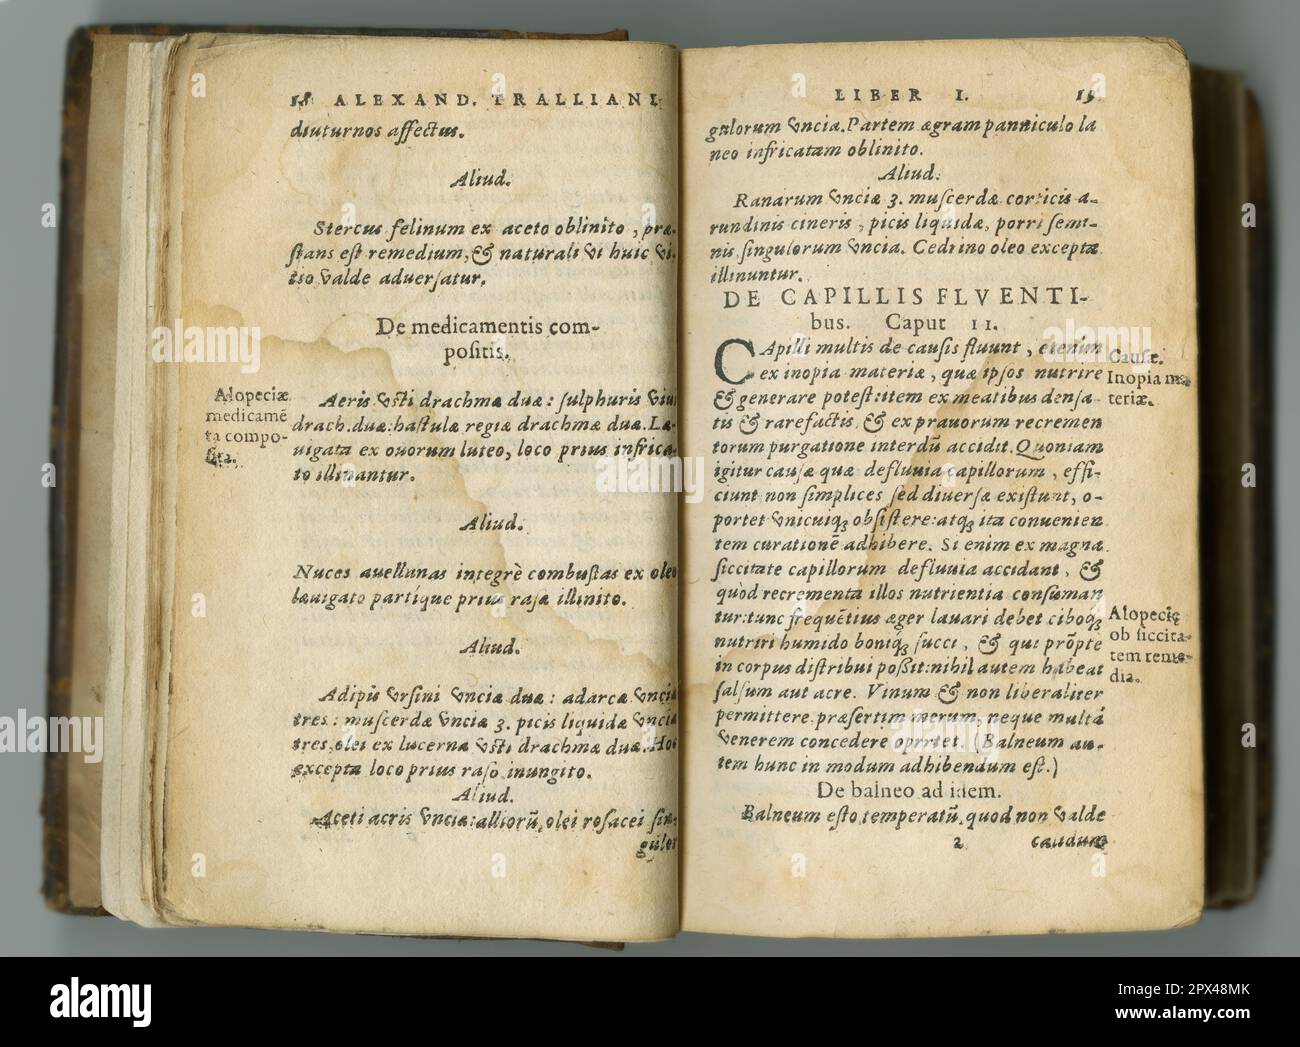 18 ALEXAND. TRALLIANI
diuturnos affectus.
Aliud.
Stercus felinum ex aceto oblinito, præ-
ſtans eſt remedium, & naturali vi huic vi-
tio valde aduerſatur.
De medicamentis com-
poſitis.
Alopeciæ
medicamē
ta compo-
ſita.
Aeris vſti drachmæ duæ: ſulphuris viui
drach. duæ: haſtulæ regiæ drachmæ duæ. Læ-
uigata ex ouorum luteo, loco prius infrica-
to illinantur.
Aliud.
Nuces auellanas integrè combuſtas ex oleo
læuigato partíque prius raſæ illinito.
Aliud.
Adipis vrſini vnciæ duæ: adarcæ vnciæ
tres: muſcerdæ vnciæ 3. picis liquidæ vnciæ
tres, olei ex lucerna vſti drachmæ duæ. Hoc
excepta loco prius raſo inungito.
Aliud.
Aceti acris vncia: alliorū, olei roſacei ſin-
gulor
LIBER I. 19
gulorum vncia. Partem ægram panniculo la
neo infricatam oblinito.
Aliud.
Ranarum vnciæ 3. muſcerdæ corticis a-
rundinis cineris, picis liquidæ, porri ſemi-
nis, ſingulorum vncia. Cedrino oleo exceptæ
illinuntur.
DE CAPILLIS FLVENTI-
bus. Caput II.
CApilli multis de cauſis fluunt, etenim
ex inopia materiæ, quæ ipſos nutrire
& generare poteſt: item ex meatibus denſa-
tis & rarefactis, & ex prauorum recremen
torum purgatione interdū accidit. Quoniam
igitur cauſæ quæ defluuia capillorum, effi-
ciunt non ſimplices ſed diuerſæ exiſtunt, o-
portet vnicuiqȝ obſiſtere: atqȝ ita conuenien
tem curationē adhibere. Si enim ex magna
ſiccitate capillorum defluuia accidant, &
quòd recrementa illos nutrientia conſuman
tur: tunc frequētius æger lauari debet ciboqȝ
nutriri humido boniqȝ ſucci, & qui prōpte
in corpus diſtribui poßit: nihil autem habeat
ſalſum aut acre. Vinum & non liberaliter
permittere, præſertim merum, neque multā
venerem concedere oportet. (Balneum au-
tem hunc in modum adhibendum eſt.)
De balneo ad idem.
Balneum eſto temperatū, quod non valde
2 calidum
Cauſæ.
Inopia ma
teriæ.
Alopeciȩ
ob ſiccita-
tem reme-
dia.
alamy
Image ID: 2PX48MK
www.alamy.com